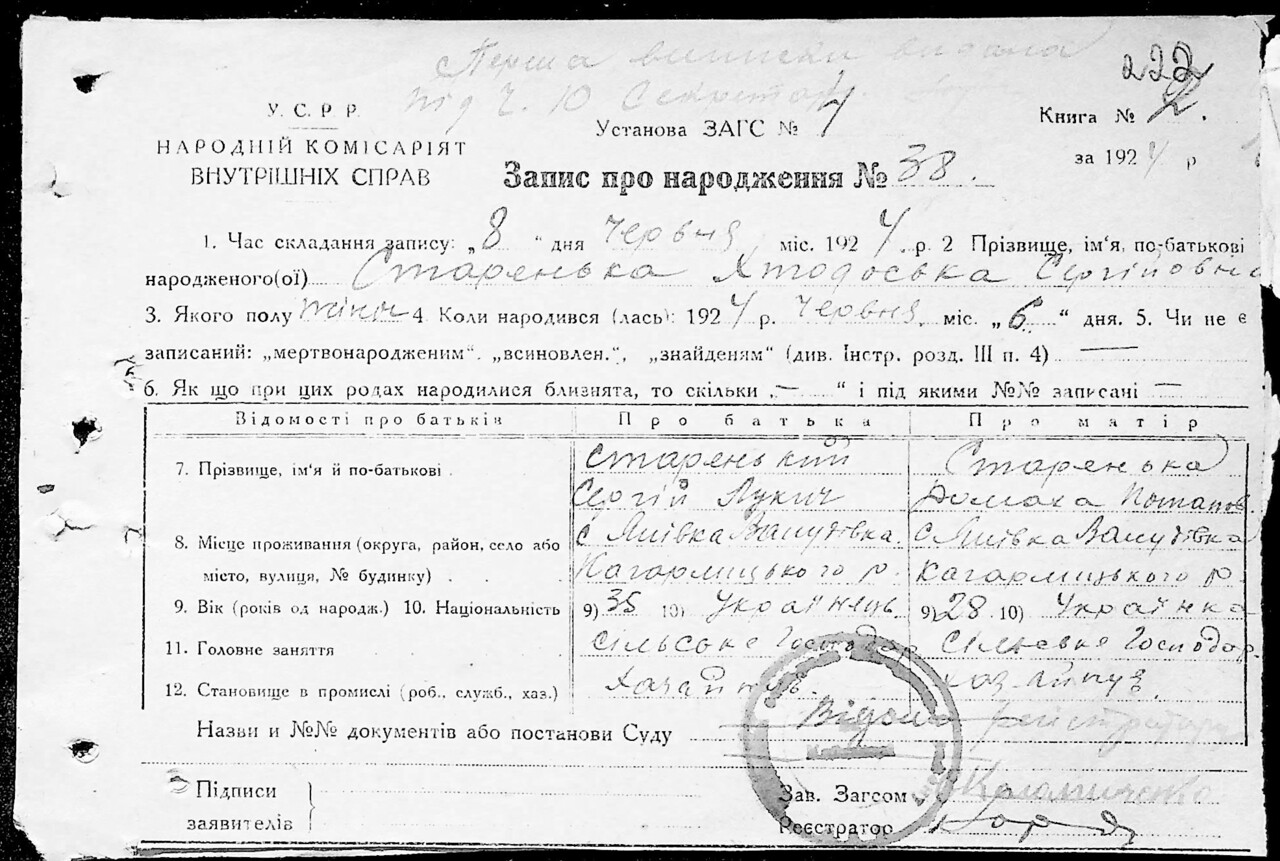 Перша виписка видана
під Ч. 10 Секретар
222
У. С. Р. Р.
НАРОДНІЙ КОМІСАРІЯТ
ВНУТРІШНІХ СПРАВ
Установа ЗАГС № 4
Книга № 2.
за 1924 р
Запис про народження № 38.
1. Час складання запису: „8 " дня Червня міс. 1924 р. 2 Прізвище, ім'я, по-батькові
народженого(ої) Старенька Хтодоська Сергійовна
3. Якого полу жіноч 4 Коли народився (лась): 1924 р. Червня міс. „6 " дня. 5. Чи не є
записаний: „мертвонародженим". „всиновлен.", „знайденям" (див. Інстр. розд. III п. 4) —
6. Як що при цих родах народилися близнята, то скільки „— " і під якими №№ записані —
Відомості про батьків Про батька Про матір
7. Прізвище, ім'я й по-батькові Старенький Старенька
Сергій Лукич Домаха Потапов.
8. Місце проживання (округа, район, село або с с
місто, вулиця, № будинку) . . Кагарлицького р. Кагарлицького р.
9. Вік (років од народж.) 10. Національність 9) 35 10) Українець 9) 28 10) Українка
11. Головне заняття Сільське Господар Сільське Господар.
12. Становище в промислі (роб., служб., хаз.)
Назви и №№ документів або постанови Суду Відомо реістратору
Підписи
заявителів
Зав. Загсом
Реєстратор